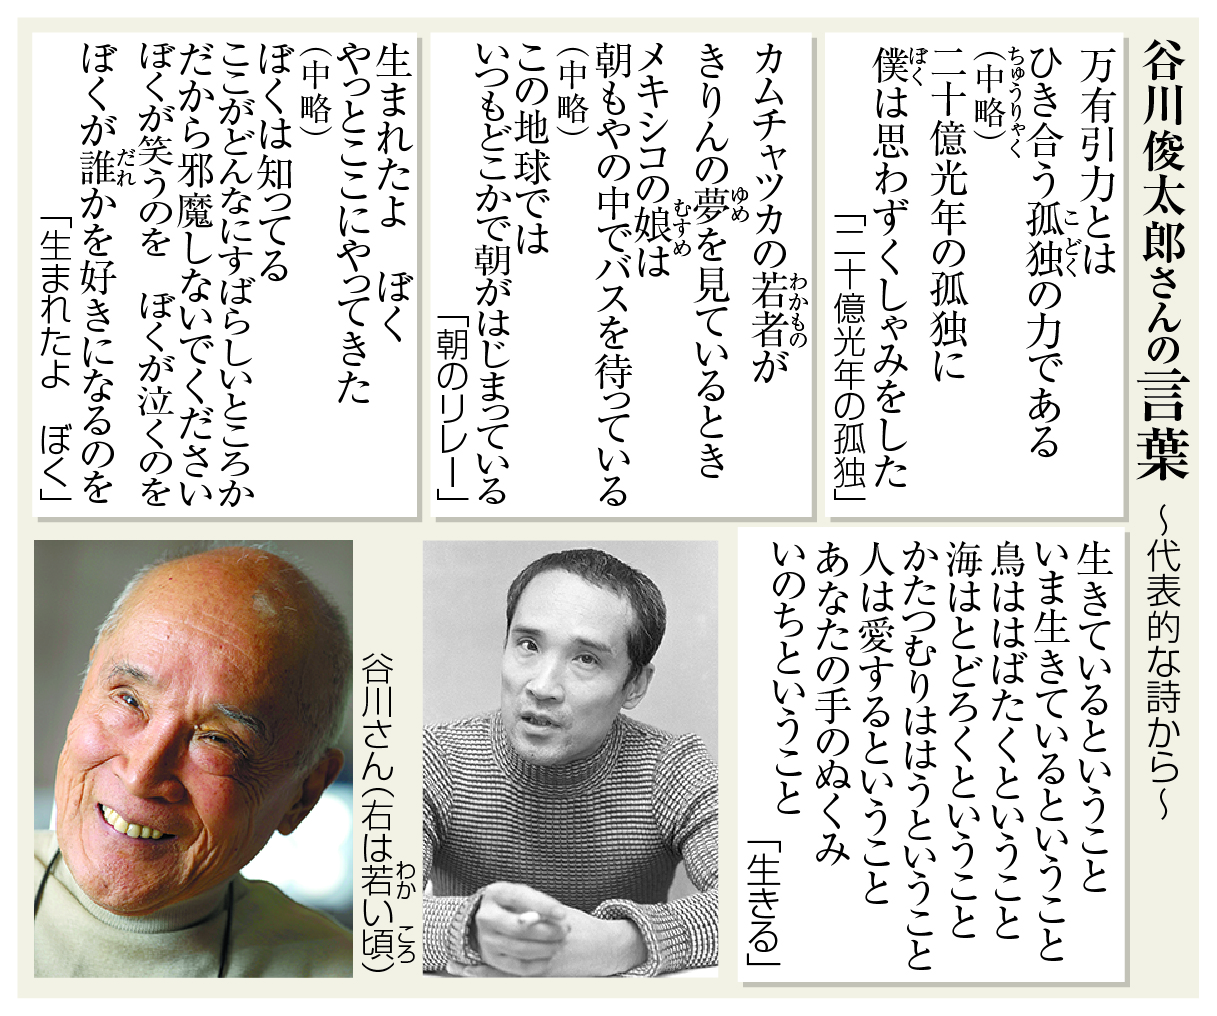 谷川俊太郎さんの言葉 〜代表的な詩から〜
万有引力とは
ひき合う孤独の力である
(中略)
二十億光年の孤独に
僕は思わずくしゃみをした
「二十億光年の孤独」
カムチャツカの若者が
きりんの夢を見ているとき
メキシコの娘は
朝もやの中でバスを待っている
(中略)
この地球では
いつもどこかで朝がはじまっている
「朝のリレー」
生まれたよ ぼく
やっとここにやってきた
(中略)
ぼくは知ってる
ここがどんなにすばらしいところか
だから邪魔しないでください
ぼくが笑うのを ぼくが泣くのを
ぼくが誰かを好きになるのを
「生まれたよ ぼく」
生きているということ
いま生きているということ
鳥ははばたくということ
海はとどろくということ
かたつむりははうということ
人は愛するということ
あなたの手のぬくみ
いのちということ
「生きる」
谷川さん(右は若い頃)